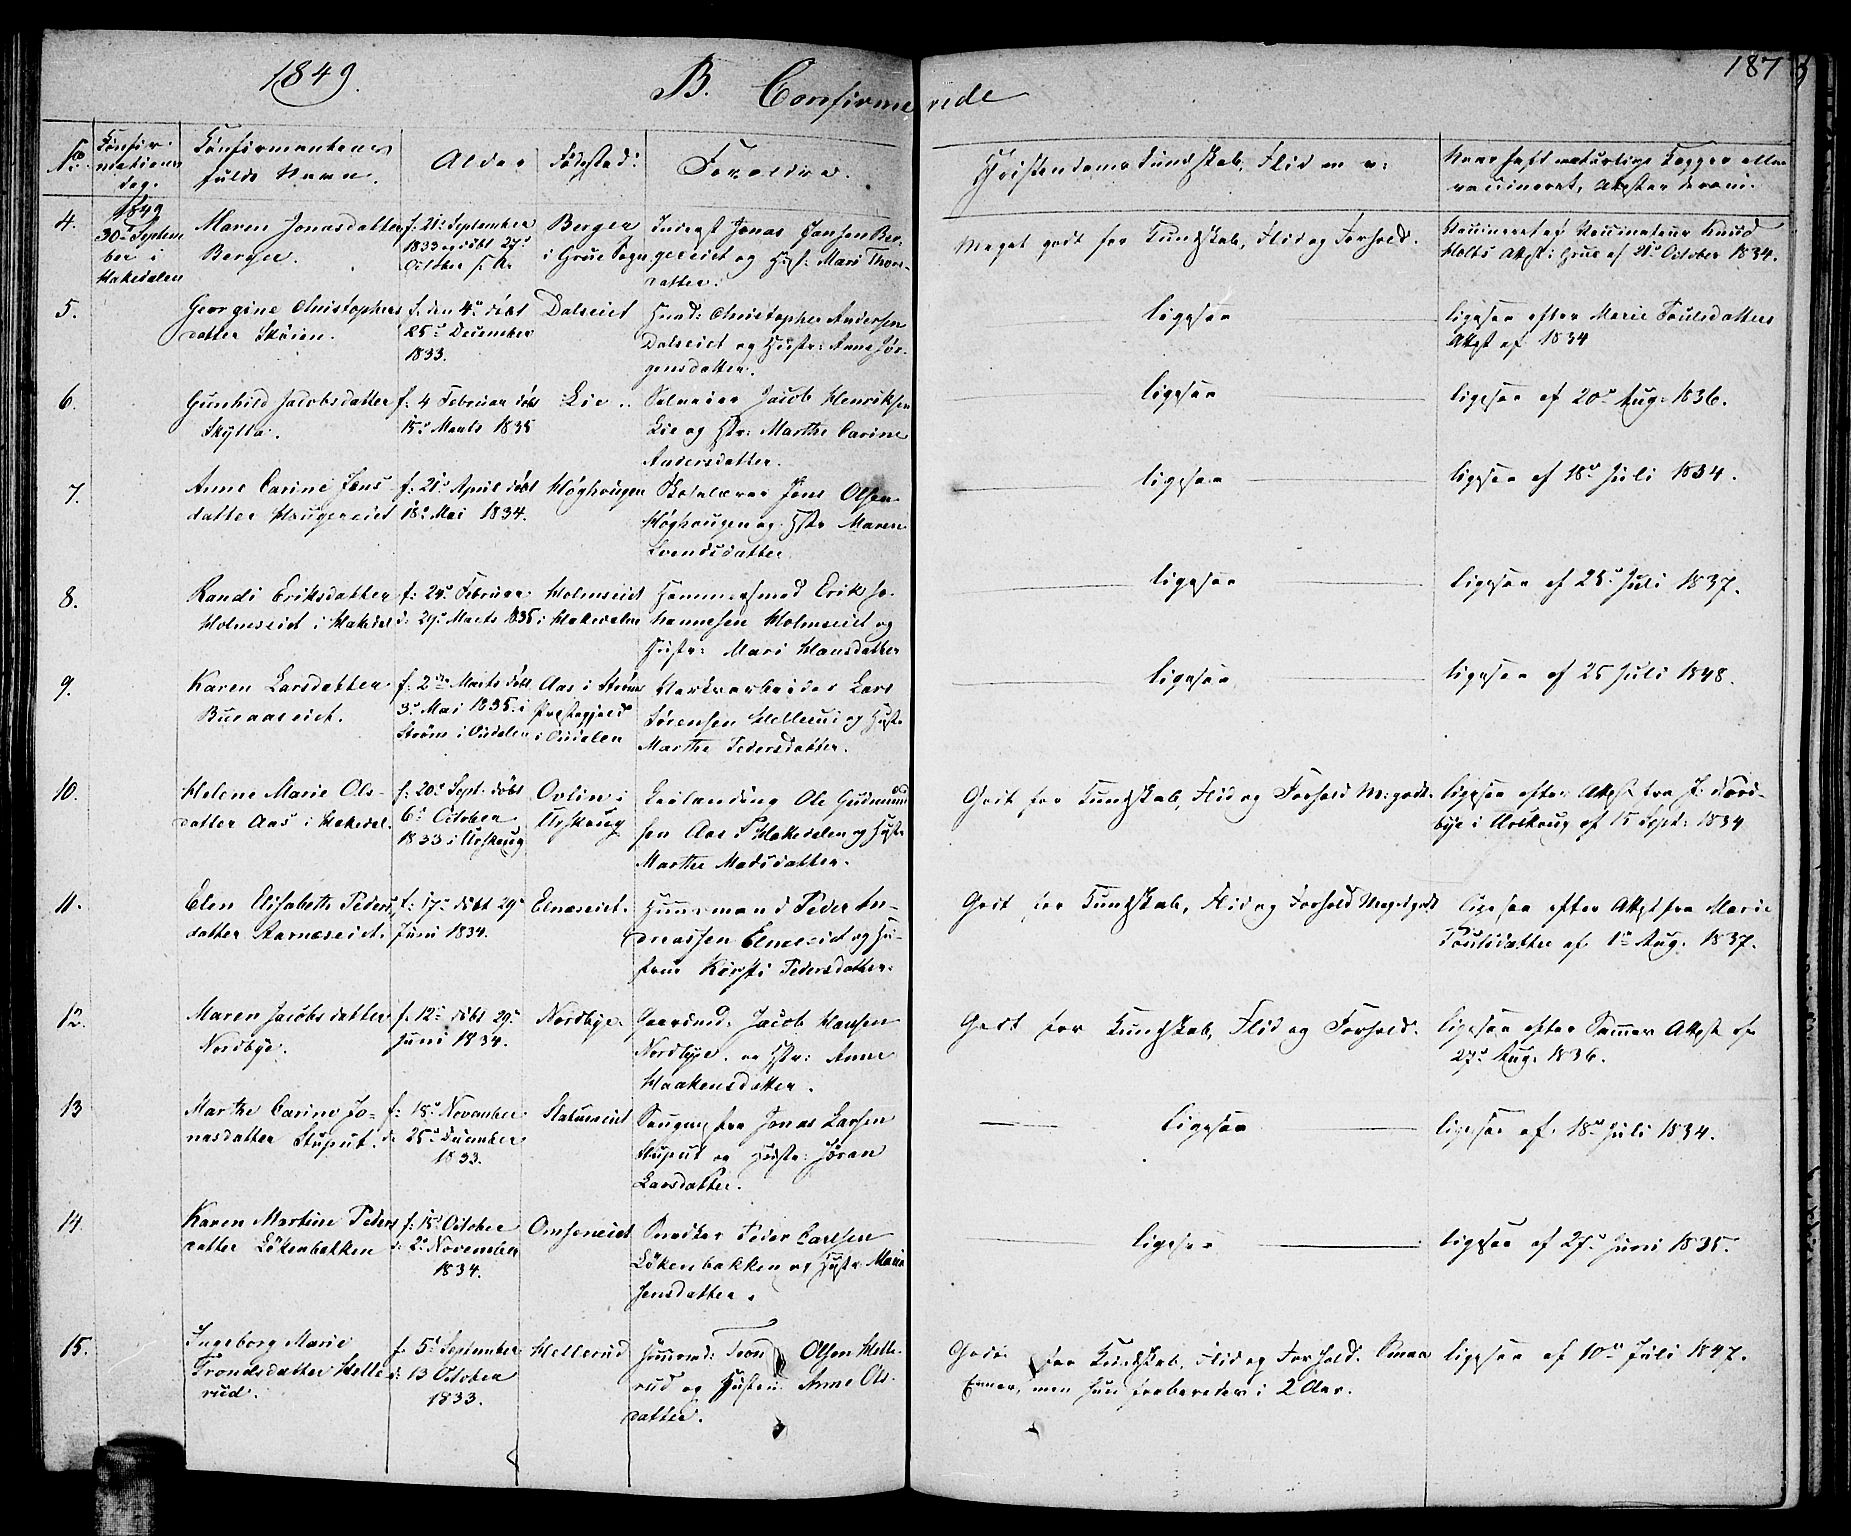 1849.
B. Confirmerede
187
No.
Confirmations
dag.
Confirmantens
fulde Navn.
Alder
Fødested:
Forældre.
Christendoms Kundskab, Flid
Naar havt naturlige Kopper eller
vaccineret, Attester derom.
4.
1849
30te Septem
ber i
Hakedalen
Maren Jonasdatter
Berger.
f. 21de September
1833 og døbt 27de
October s. A.
Berger
i Grue Sogn
Inderst Jonas Jansen Ber-
gereiet og H: Mari Thors-
datter.
Meget godt for Kundskab, Flid og Forhold.
Vaccineret af Vaccinateur Knud
Holts Attest i Grue af 21de October 1834.
5.
Georgine Christophers
datter Skøien.
f. den 4de døbt
25de December
1833.
Dalseiet
Huusmd: Christopher Andersen
Dalseiet og Hustr: Anne Jør-
gensdatter.
ligesaa
ligesaa efter Marie Poulsdatters
Attest af 1834
6.
Gunhild Jacobsdatter
Skytta.
f. 4 Februar døbt
15de Marts 1835
Lie.
Jacob Henriksen
Lie og Hstr: Marthe Carine
Andersdatter.
ligesaa
ligesaa af 20de Aug. 1836.
7.
Anne Carine Jens
datter Haugereiet
f. 21de April døbt
18de Mai 1834.
Høghougen
Skolelærer Jens Olsen
Høghougen og Hstr Maren
Svendsdatter.
ligesaa
ligesaa af 18de Juli 1834.
8.
Randi Eriksdatter
Holmseiet i Hakedal
f. 24de Februar
d. 29de Marts 1835
Holmseiet
i Hakedalen
Hammersmed Erik Jo-
hannesen Holmseiet og
Hustr: Mari Hansdatter
ligesaa
ligesaa af 25de Juli 1837.
9.
Karen Larsdatter
Buraaseiet.
f. 2den Marts døbt
3de Mai 1835 i
Strøm i Oudalen
Aas i Strøms
Præstegjeld
i Oudalen
Værksarbeider Lars
Sørensen Hellerud og Hustr
Marthe Pedersdatter.
ligesaa
ligesaa af 25 Juli 1848.
10.
Helene Marie Ols-
datter Aas i Hakedal.
f. 20de Sept. døbt
6te October
1833 i Urskoug
Ovlin i
Urskoug
Leilænding Ole Gudmund
sen Aas i Hakedalen og Hustr
Marthe Madsdatter.
Godt for Kundskab, Flid og Forhold M: godt.
ligesaa efter Attest fra J. Nord-
bye i Urskoug af 15 Sept: 1834
11.
Elen Elisabeth Peders
datter Aarnæseiet.
f. 17de døbt 29de
Juni 1834.
Elnæseiet.
Huusmand Peder An-
dreassen Elnæseiet og Hu-
strue Kirsti Pedersdatter.
Godt for Kundskab, Flid og Forhold Meget godt
ligesaa efter Attest fra Marie
Poulsdatter af 1ste Aug. 1837.
12.
Maren Jacobsdatter
Nordbye.
f. 12te døbt 29de
Juni 1834.
Nordbye.
Gaardmd. Jacob Hansen
Nordbye og Hstr: Anne
Haakensdatter.
Godt for Kundskab, Flid og Forhold.
ligesaa efter Samme Attest af
27de Aug. 1836.
13
Marthe Carine Jo-
nasdatter Stuput.
f. 18de November
d. 25de December
1833.
Jonas Larsen
Stuput og Hustr: Jøran
Larsdatter.
ligesaa
ligesaa af 18de Juli 1834.
14.
Karen Martine Peders
datter Løkenbakken
f. 15de October
d. 2de November
1834.
Snedker Peder Carlsen
Løkenbakken og Hustr Marie
Jensdatter.
ligesaa
ligesaa af 27de Juni 1835.
15.
Ingeborg Marie
Trondsdatter Helle
rud.
f. 5te September
d. 13 October
1833.
Hellerud
Huusmd: Trond Olsen Helle-
rud og Hustru Anne Ols-
datter.
Godt for Kundskab, Flid og Forhold. Smaa
Evner, men har forberedet i 2 Aar.
ligesaa af 10de Juli 1847.